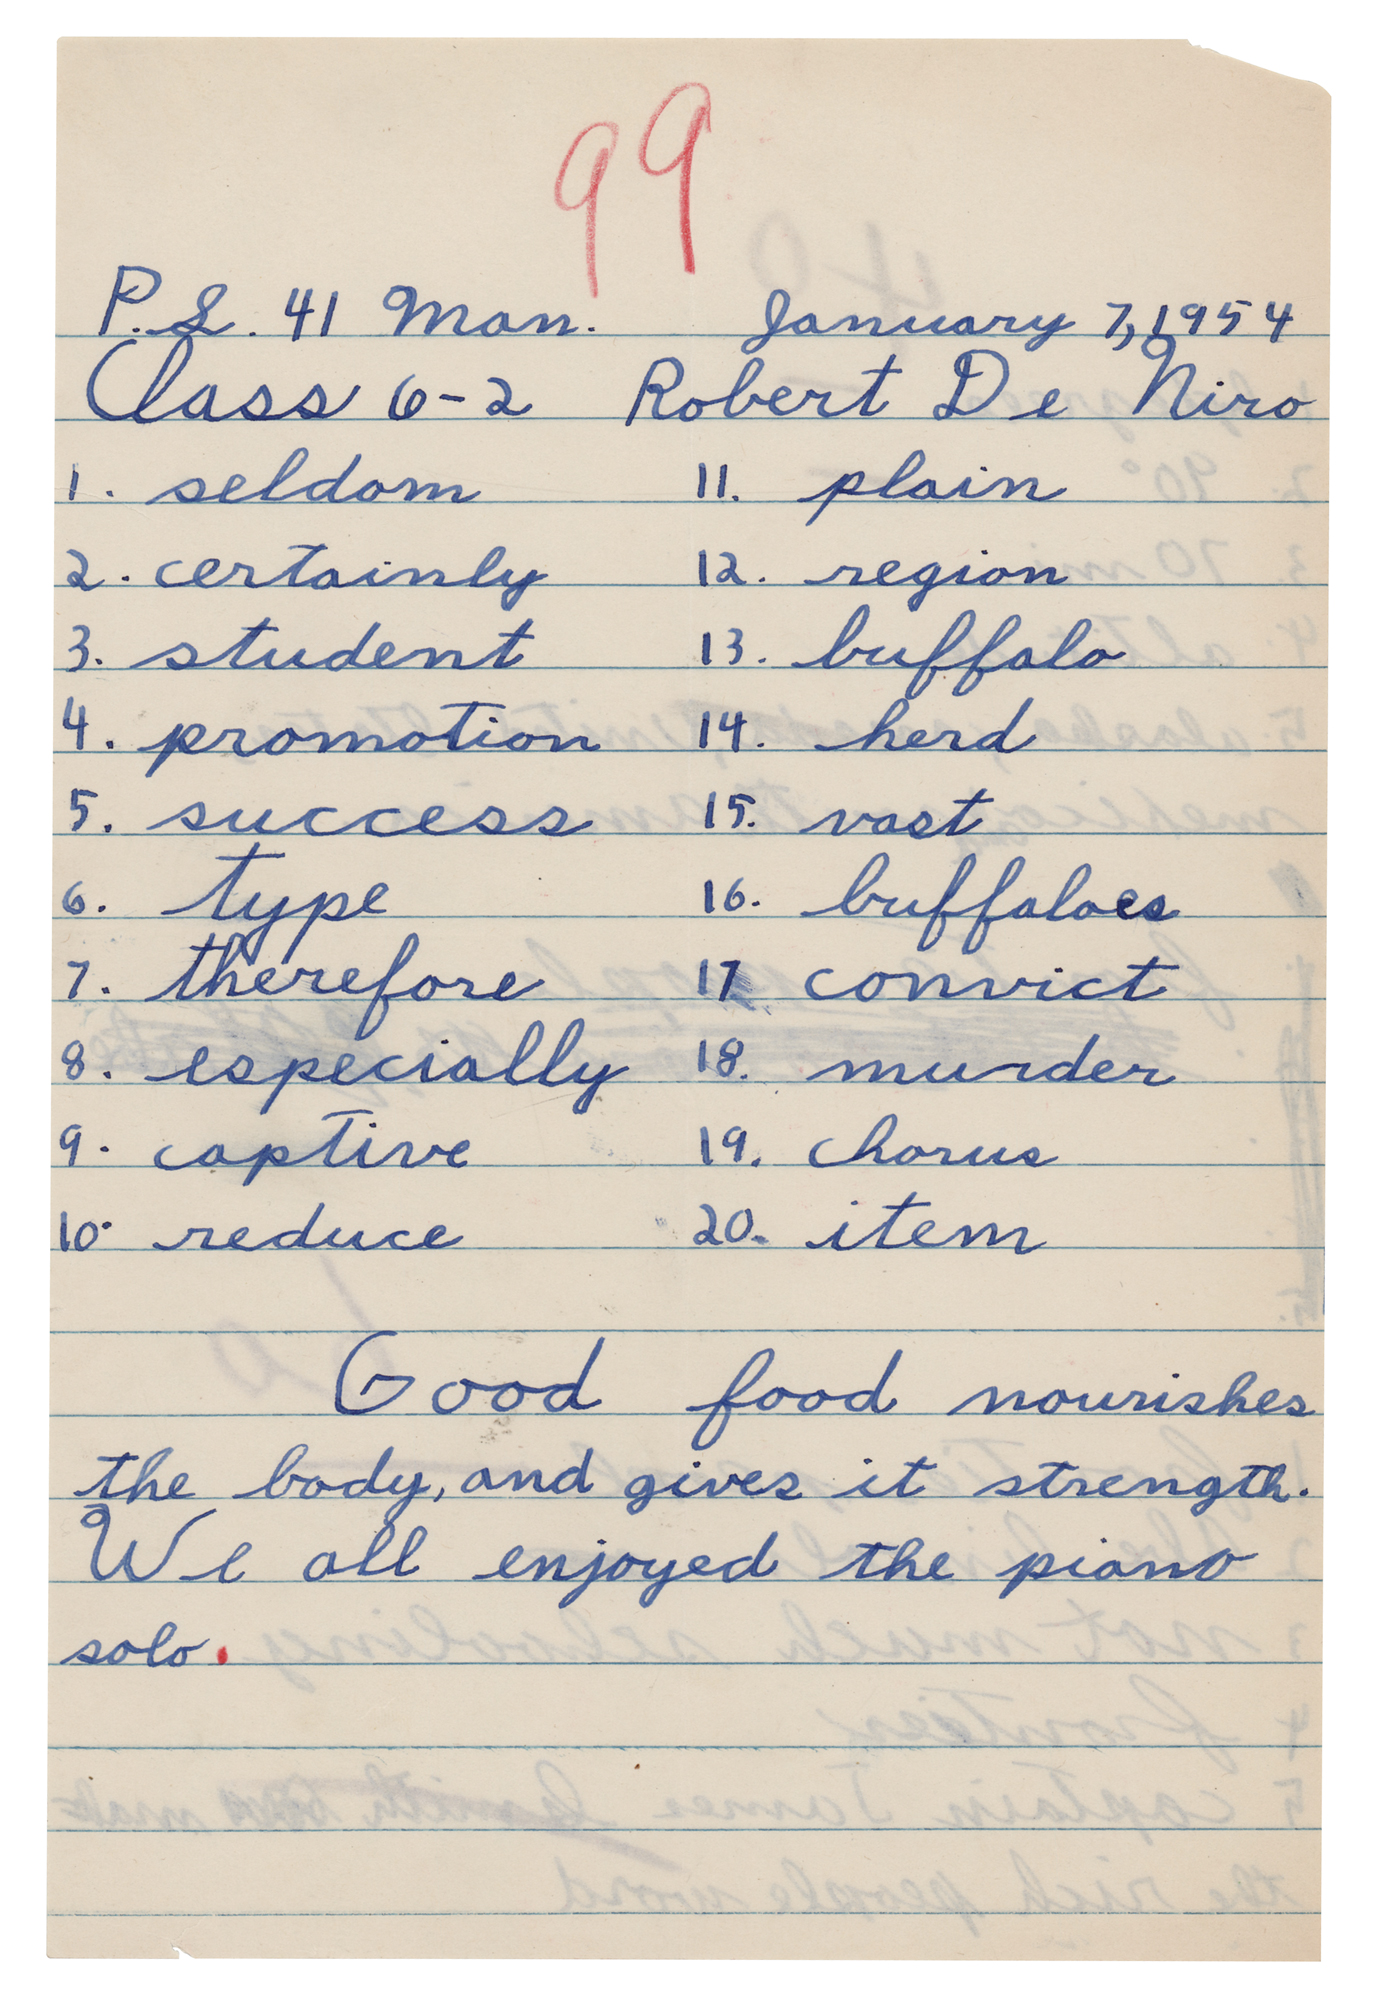 99
P.S. 41 Man. January 7, 1954
Class 6-2 Robert De Niro
1. seldom 11. plain
2. certainly 12. region
3. student 13. buffalo
4. promotion 14. herd
5. success 15. vast
6. type 16. buffaloes
7. therefore 17 convict
8. especially 18. murder
9. captive 19. chorus
10. reduce 20. item
Good food nourishes
the body, and gives it strength.
We all enjoyed the piano
solo.